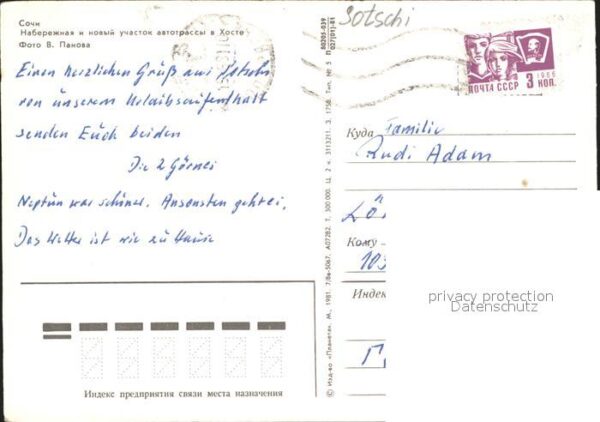 Сочи
Набережная и новый участок автотрассы в Хосте
Фото В. Панова
Einen herzlichen Gruß aus Sotschi
von unserem Urlaubsaufenthalt
senden Euch beiden
Die 2 Görnei
Neptun war schöner. Ansonsten geht es.
Das Wetter ist wie zu Hause
Индекс предприятия связи места назначения
© Изд-во «Планета». М., 1981. 7/8е-5067. А07282. Т. 500 000. Ц. 2 к. 3113211. З. 1758. Тип. № 5 П
80205-039
027(01)-81
Sotschi
1966
ПОЧТА СССР 3 КОП.
Куда
Familie
Rudi Adam
Кому
103
Индек
privacy protection
Datenschutz